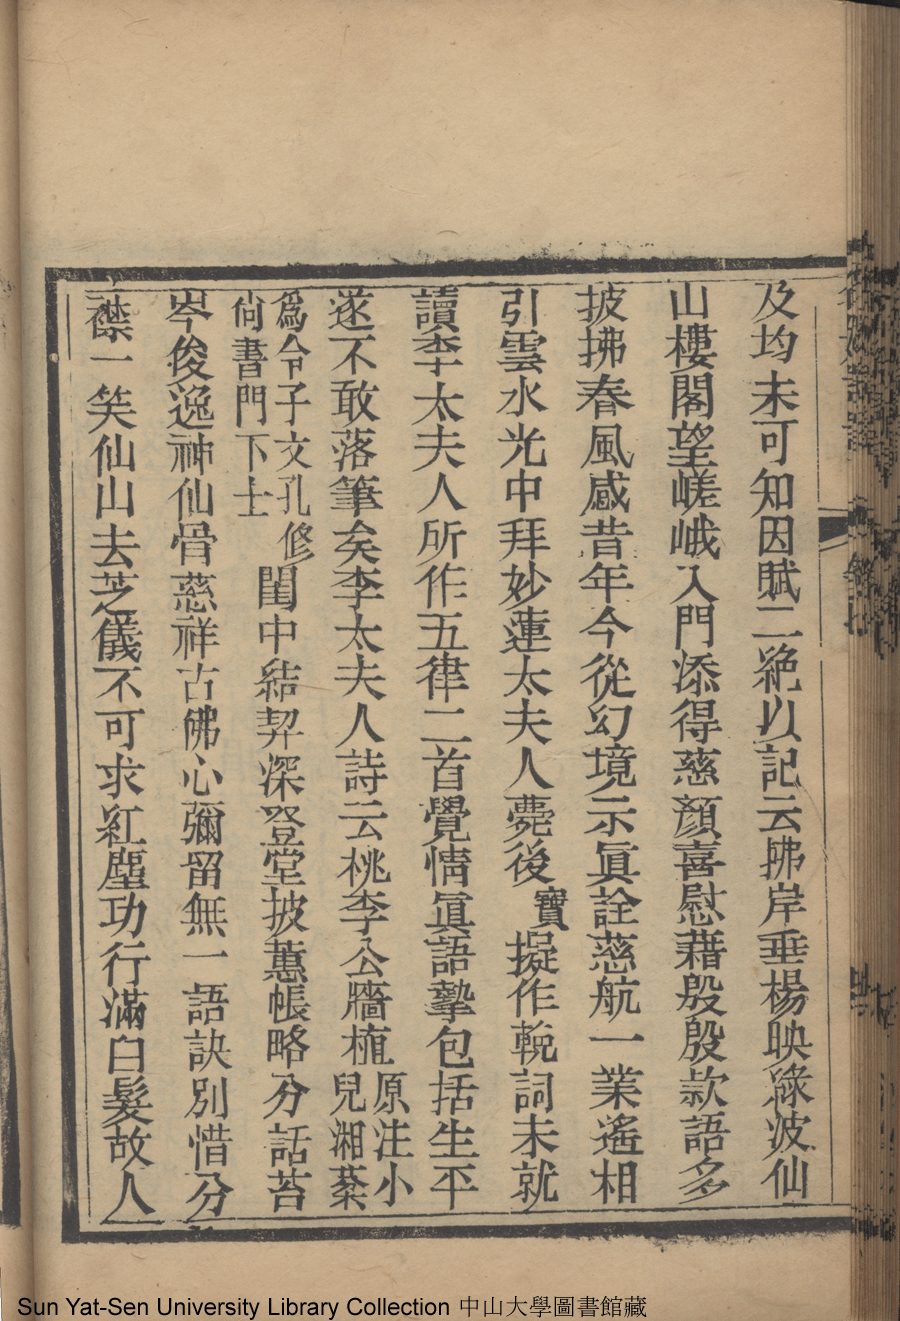 及均未可知因賦二絕以記云拂岸垂楊映綠波仙
山樓閣望嵯峨入門添得慈顏喜慰藉殷殷款語多
披拂春風感昔年今從幻境示眞詮慈航一業遙相
引雲水光中拜妙蓮太夫人薨後寶擬作輓詞未就
讀李太夫人所作五律二首覺情眞語摯包括生平
遂不敢落筆矣李太夫人詩云桃李公牆植原注小
兒湘棻
爲令子文孔修
尙書門下士閨中結契深登堂披蕙帳略分話苔
岑俊逸神仙骨慈祥古佛心彌留無一語訣別惜分
襟一笑仙山去芝儀不可求紅塵功行滿白髮故人
Sun Yat-Sen University Library Collection 中山大學圖書館藏